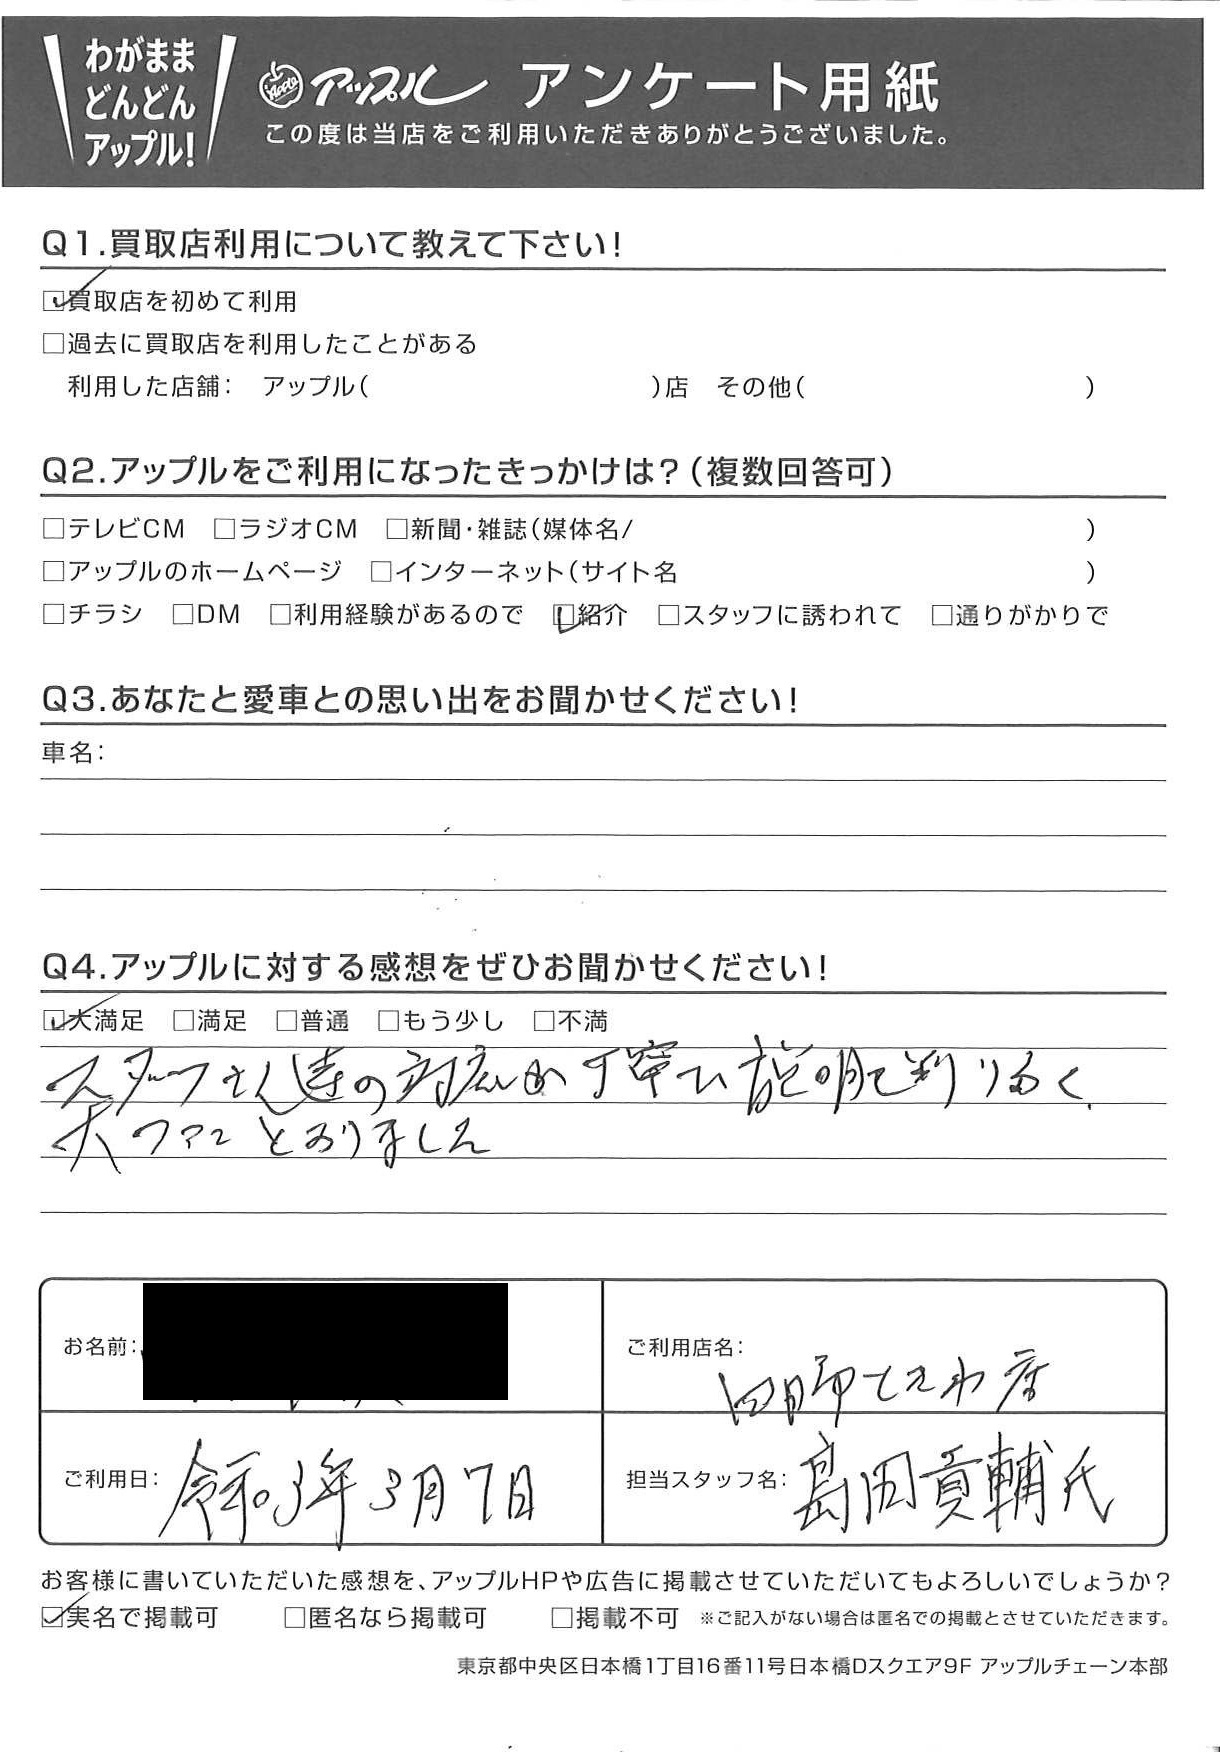 わがまま
どんどん
アップル!
Apple アップル アンケート用紙
この度は当店をご利用いただきありがとうございました。
Q1.買取店利用について教えて下さい!
☑買取店を初めて利用
□過去に買取店を利用したことがある
利用した店舗: アップル( )店 その他( )
Q2.アップルをご利用になったきっかけは?(複数回答可)
□テレビCM □ラジオCM □新聞・雑誌(媒体名/ )
□アップルのホームページ □インターネット(サイト名 )
□チラシ □DM □利用経験があるので ☑紹介 □スタッフに誘われて □通りがかりで
Q3.あなたと愛車との思い出をお聞かせください!
車名:
Q4.アップルに対する感想をぜひお聞かせください!
☑大満足 □満足 □普通 □もう少し □不満
スタッフさん達の対応が丁寧で説明も判りよく
大ファンとなりました
お名前:
ご利用店名:
店
ご利用日: 令和3年3月7日
担当スタッフ名: 島田貢輔氏
お客様に書いていただいた感想を、アップルHPや広告に掲載させていただいてもよろしいでしょうか?
☑実名で掲載可 □匿名なら掲載可 □掲載不可 ※ご記入がない場合は匿名での掲載とさせていただきます。
東京都中央区日本橋1丁目16番11号日本橋Dスクエア9F アップルチェーン本部